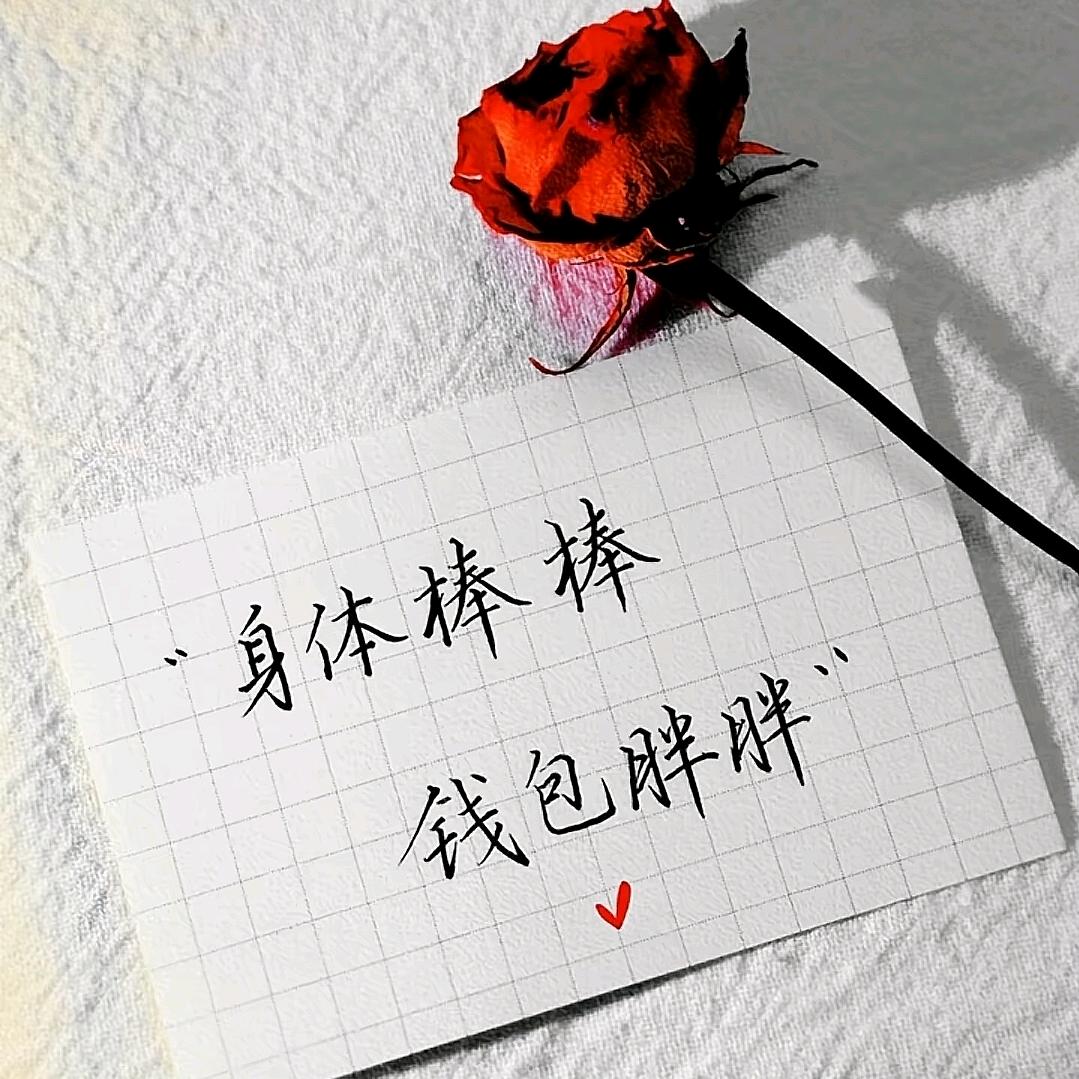 "身体棒棒
钱包胖胖"